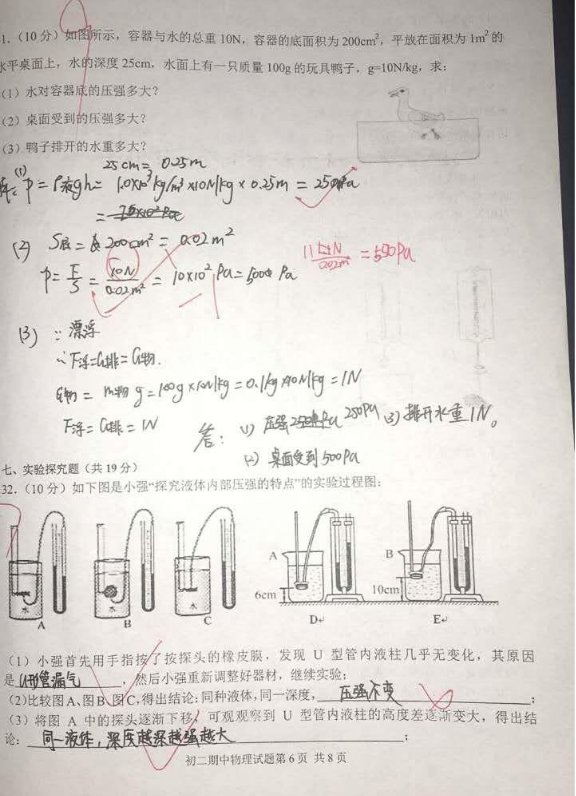 1.（10 分）如图所示，容器与水的总重 10N，容器的底面积为 200cm²，平放在面积为 1m² 的
水平桌面上，水的深度 25cm．水面上有一只质量 100g 的玩具鸭子，g=10N/kg，求：
（1）水对容器底的压强多大？
（2）桌面受到的压强多大？
（3）鸭子排开的水重多大？
25cm = 0.25m
(1) P = ρ液gh = 1.0×10³kg/m³×10N/kg×0.25m = 2500Pa
(2) S底 = 200cm² = 0.02m²
P = F/S = 10N/0.02m² = 10×10² Pa = 500 Pa
11N/0.02m² = 550Pa
(3) ∵漂浮
∴F浮=G排=G物.
G物 = m物g = 100g×10N/kg = 0.1kg×10N/kg = 1N
F浮=G排=1N
答：(1) 压强 2500Pa (3) 排开水重1N。
(2) 桌面受到500Pa
七、实验探究题（共 19 分）
32.（10 分）如下图是小强“探究液体内部压强的特点”的实验过程图：
A B
6cm 10cm
水 水 水
A B C D E
（1）小强首先用手指按了按探头的橡皮膜，发现 U 型管内液柱几乎无变化，其原因
是 U形管漏气 ，然后小强重新调整好器材，继续实验；
(2)比较图 A、图 B、图 C,得出结论:同种液体,同一深度, 压强不变 ；
（3）将图 A 中的探头逐渐下移，可观观察到 U 型管内液柱的高度差逐渐变大，得出结
论： 同一液体，深度越深越强越大 ；
初二期中物理试题第 6 页 共 8 页